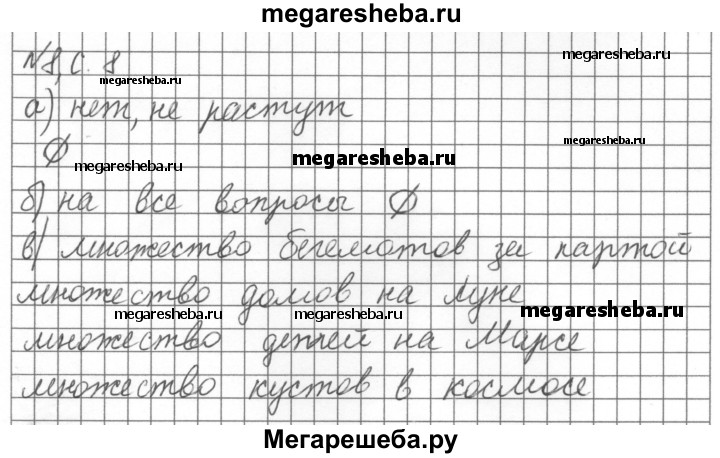 megaresheba.ru
№8, с. 8
megaresheba.ru
megaresheba.ru
а) нет, не растут
∅
megaresheba.ru
megaresheba.ru
megaresheba.ru
б) на все вопросы ∅
в) множество бегемотов за партой
множество домов на Луне
megaresheba.ru
megaresheba.ru
megaresheba.ru
множество детей на Марсе
множество кустов в космосе
Мегарешеба.ру